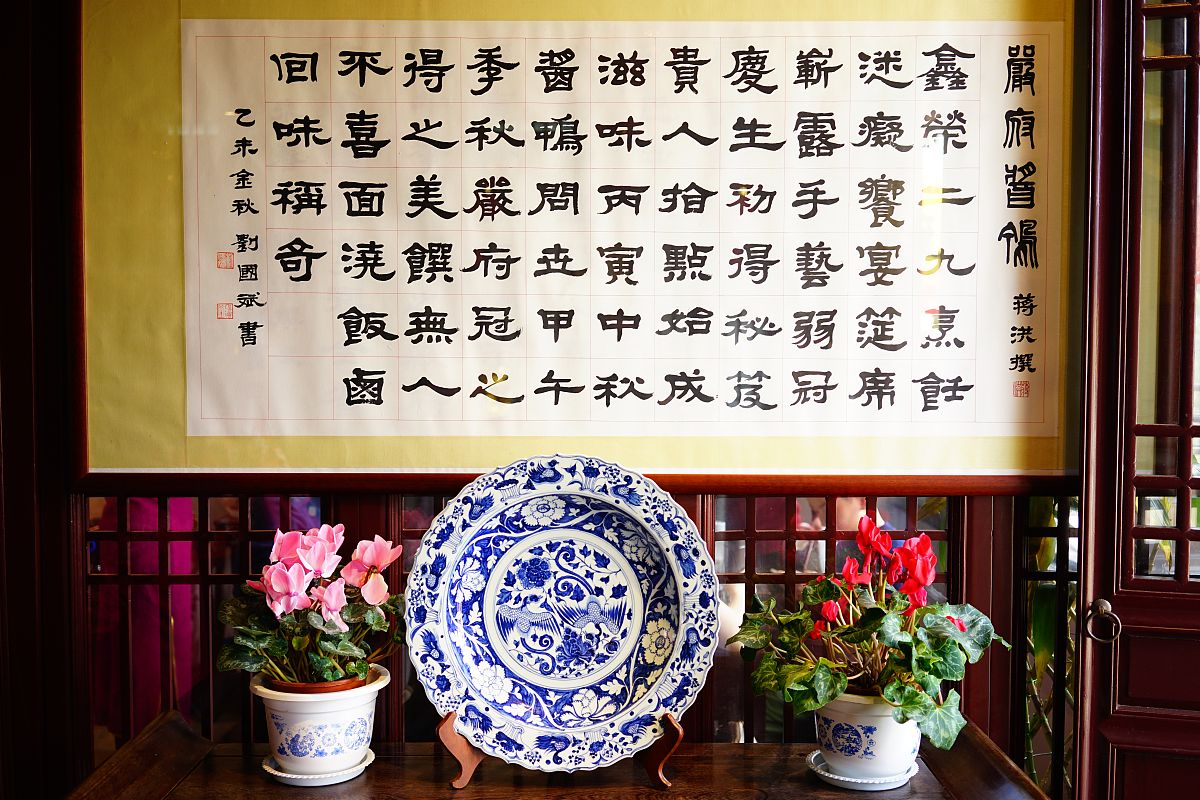 嚴府醬鴨 蒋洪撰
鑫榮二九烹飪
迷癡饗宴筵席
嶄露手藝弱冠
慶生初得秘笈
貴人指點始成
滋味丙寅中秋
醬鴨問世甲午
季秋嚴府冠之
得之美饌無人
不喜面澆飯鹵
回味稱奇
乙未金秋 劉國斌書